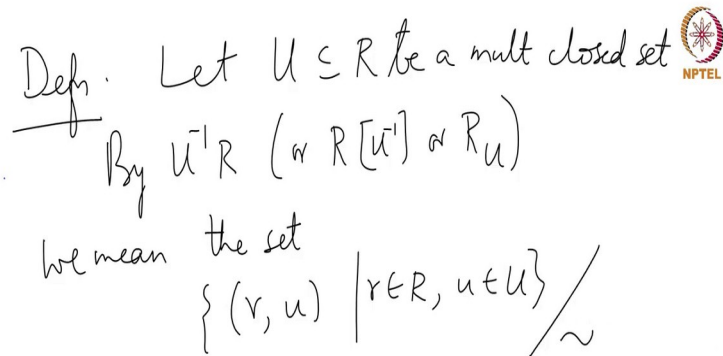 Defn. Let U ⊆ R be a mult closed set
NPTEL
By U⁻¹R (or R[U⁻¹] or R_U)
we mean the set
{(r, u) | r∈R, u∈U}/~